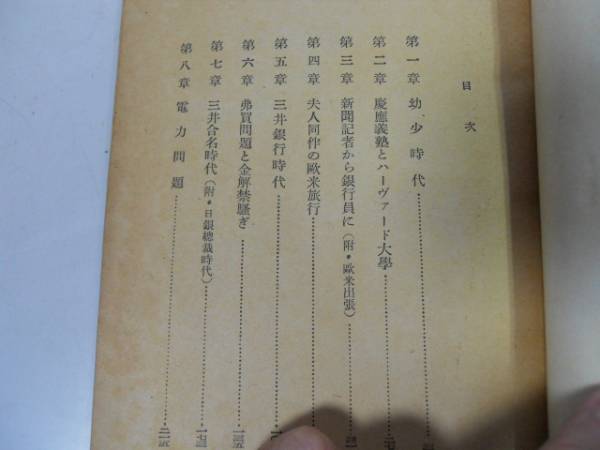 目次
第一章 幼少時代
第二章 慶應義塾とハーヴァード大學
第三章 新聞記者から銀行員に（附・歐米出張）
第四章 夫人同伴の歐米旅行
第五章 三井銀行時代
第六章 弗買問題と金解禁騷ぎ
第七章 三井合名時代（附・日銀總裁時代）
第八章 電力問題